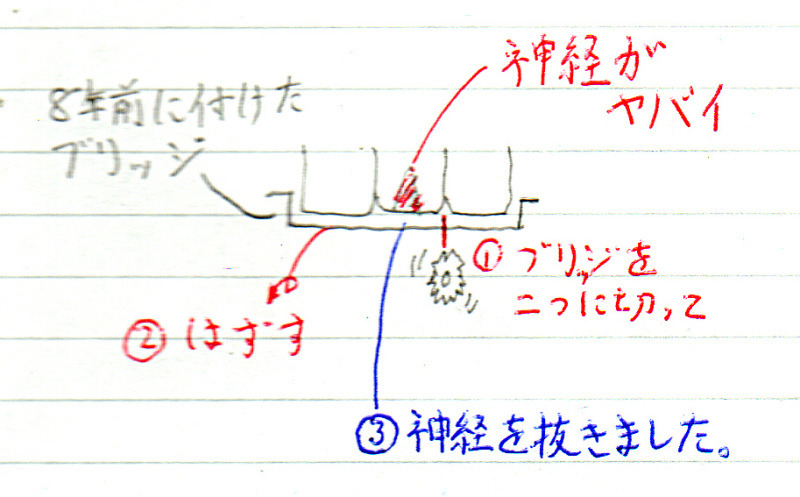 神経が
ヤバイ
8年前に付けた
ブリッジ
① ブリッジを
二つに切って
② はずす
③ 神経を抜きました。